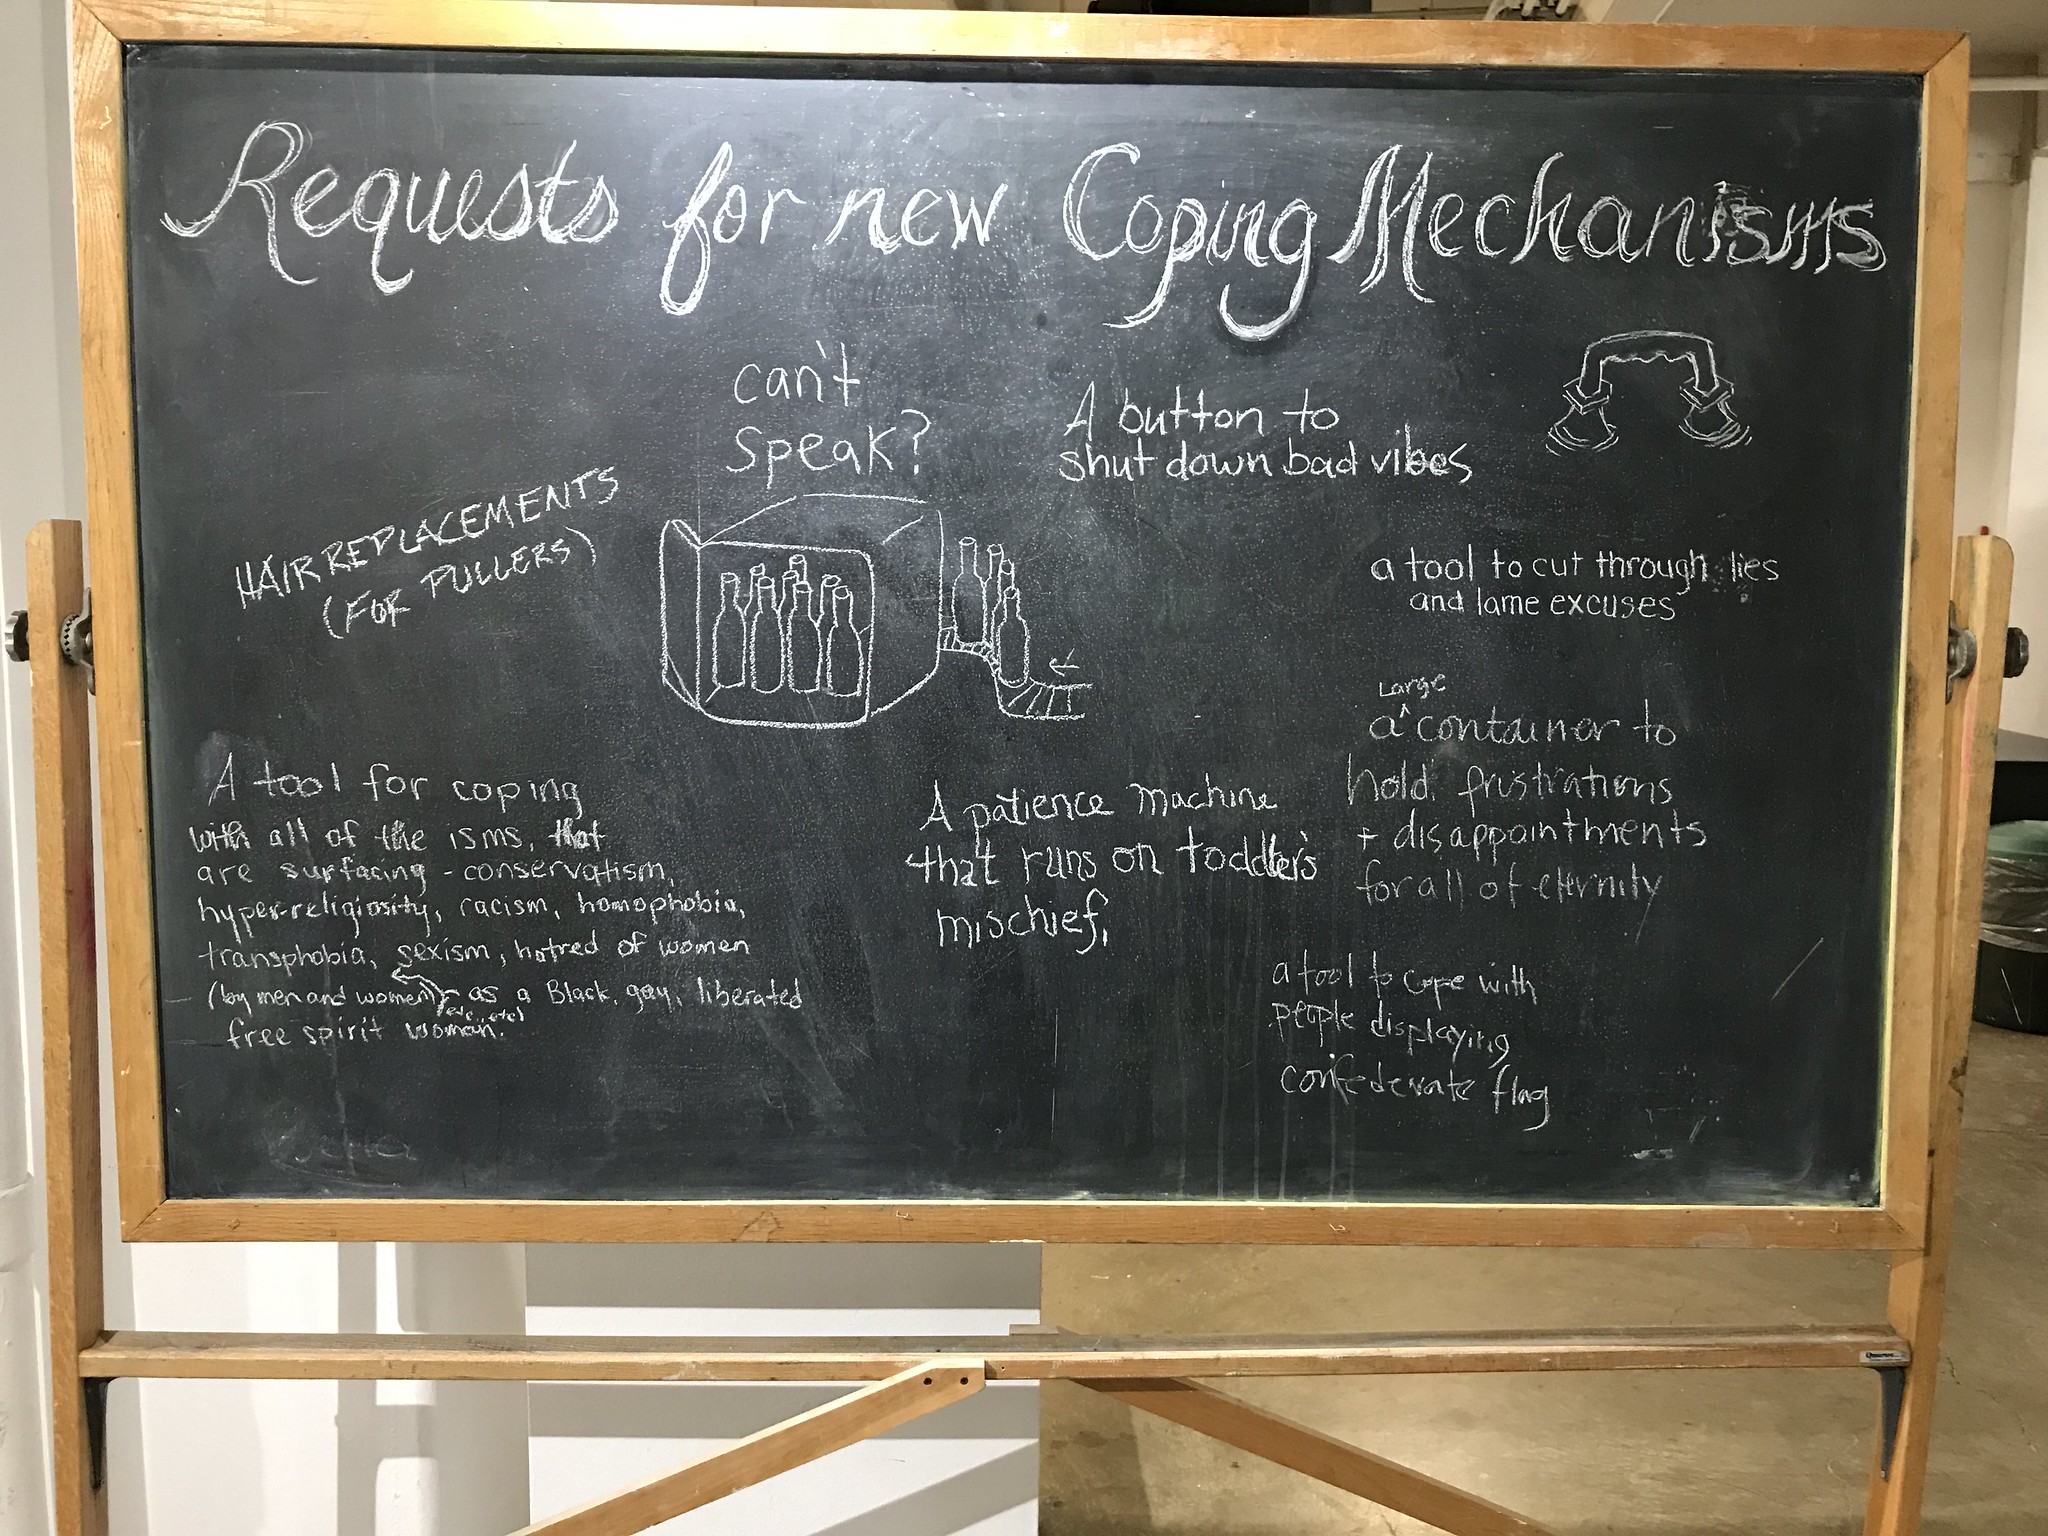 Requests for new Coping Mechanisms
can't
speak?
A button to
shut down bad vibes
HAIR REPLACEMENTS
(FOR PULLERS)
a tool to cut through lies
and lame excuses
Large
a ^ container to
hold frustrations
+ disappointments
for all of eternity
A tool for coping
with all of the isms, that
are surfacing - conservatism,
hyper-religiosity, racism, homophobia,
transphobia, sexism, hatred of women
(by men and women) - as a Black, gay, liberated
free spirit woman.
A patience machine
that runs on toddler's
mischief,
a tool to cope with
people displaying
confederate flag